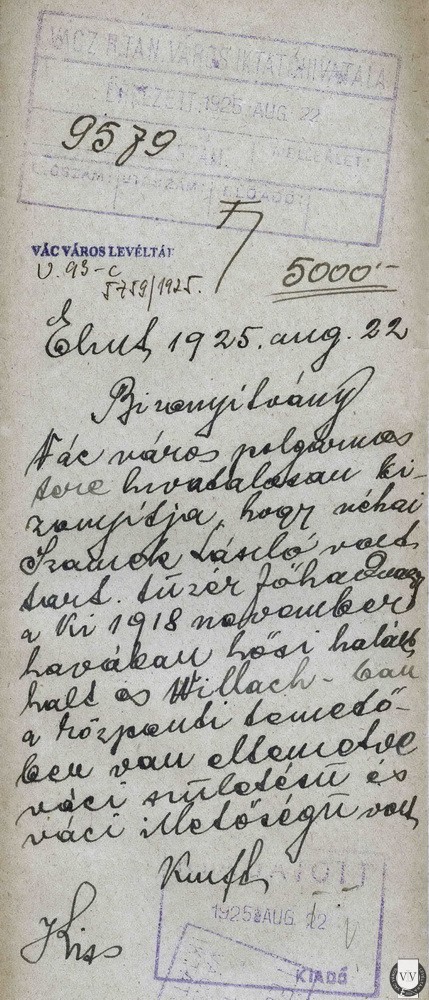 VÁCZ R.T.AN. VÁROS IKTATÓHIVATALA
ÉRKEZETT: 1925 AUG. 22
9579
SZÁM. MELLÉKLET:
ELŐSZÁM: UTÓSZÁM: ELŐADÓ:
VÁC VÁROS LEVÉLTÁR
V. 93-c
5759/1925.
5000'-
Elint 1925. aug. 22
Bizonyítvány
Vác város polgármes
tere hivatalosan bi-
zonyítja, hogy néhai
Szamek László volt
tart. tüzér főhadnagy
a ki 1918 november
havában hősi halált
halt és Willach-ban
a központi temető-
ben van eltemetve
váci születésű és
váci illetőségű volt
Kmft
Kiss
1925 AUG. 22
KIADÓ
VV